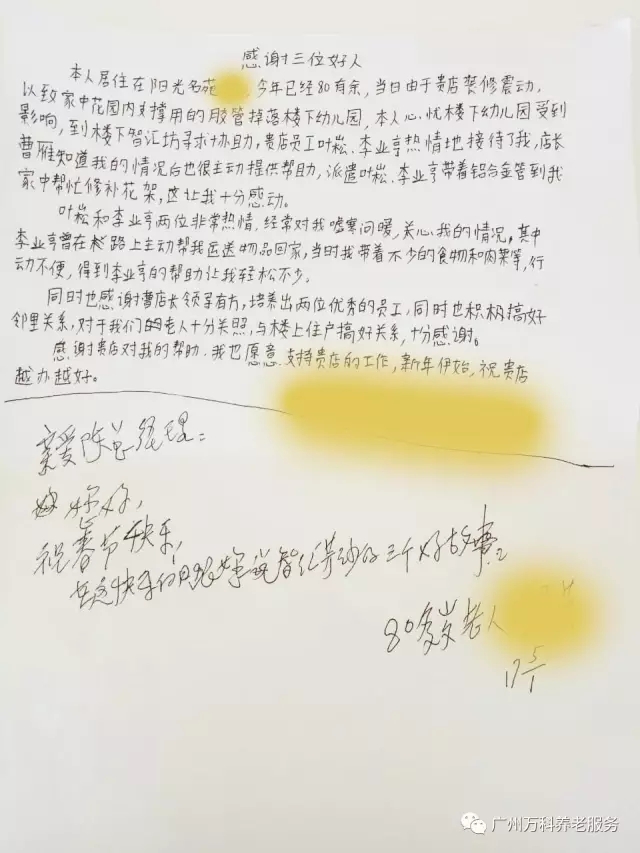 感谢三位好人
本人居住在阳光名苑 今年已经80有余,当日由于贵店装修震动,
以致家中花园内支撑用的胶管掉落楼下幼儿园,本人心忧楼下幼儿园受到
影响,到楼下智汇坊寻求协助,贵店员工叶崧、李业亨热情地接待了我,店长
曹雁知道我的情况后也很主动提供帮助,派遣叶崧、李业亨带着铝合金管到我
家中帮忙修补花架,这让我十分感动。
叶崧和李业亨两位非常热情,经常对我嘘寒问暖,关心我的情况,其中
李业亨曾在路上主动帮我运送物品回家,当时我带着不少的食物和肉菜等,行
动不便,得到李业亨的帮助让我轻松不少。
同时也感谢曹店长领导有方,培养出两位优秀的员工,同时也积极搞好
邻里关系,对于我们的老人十分关照,与楼上住户搞好关系,十分感谢。
感谢贵店对我的帮助,我也愿意支持贵店的工作,新年伊始,祝贵店
越办越好。
亲爱陈总经理:
你好,
祝春节快乐,
在这快乐的日 智汇 三个好故事。
80多岁老人
17 5/1
广州万科养老服务